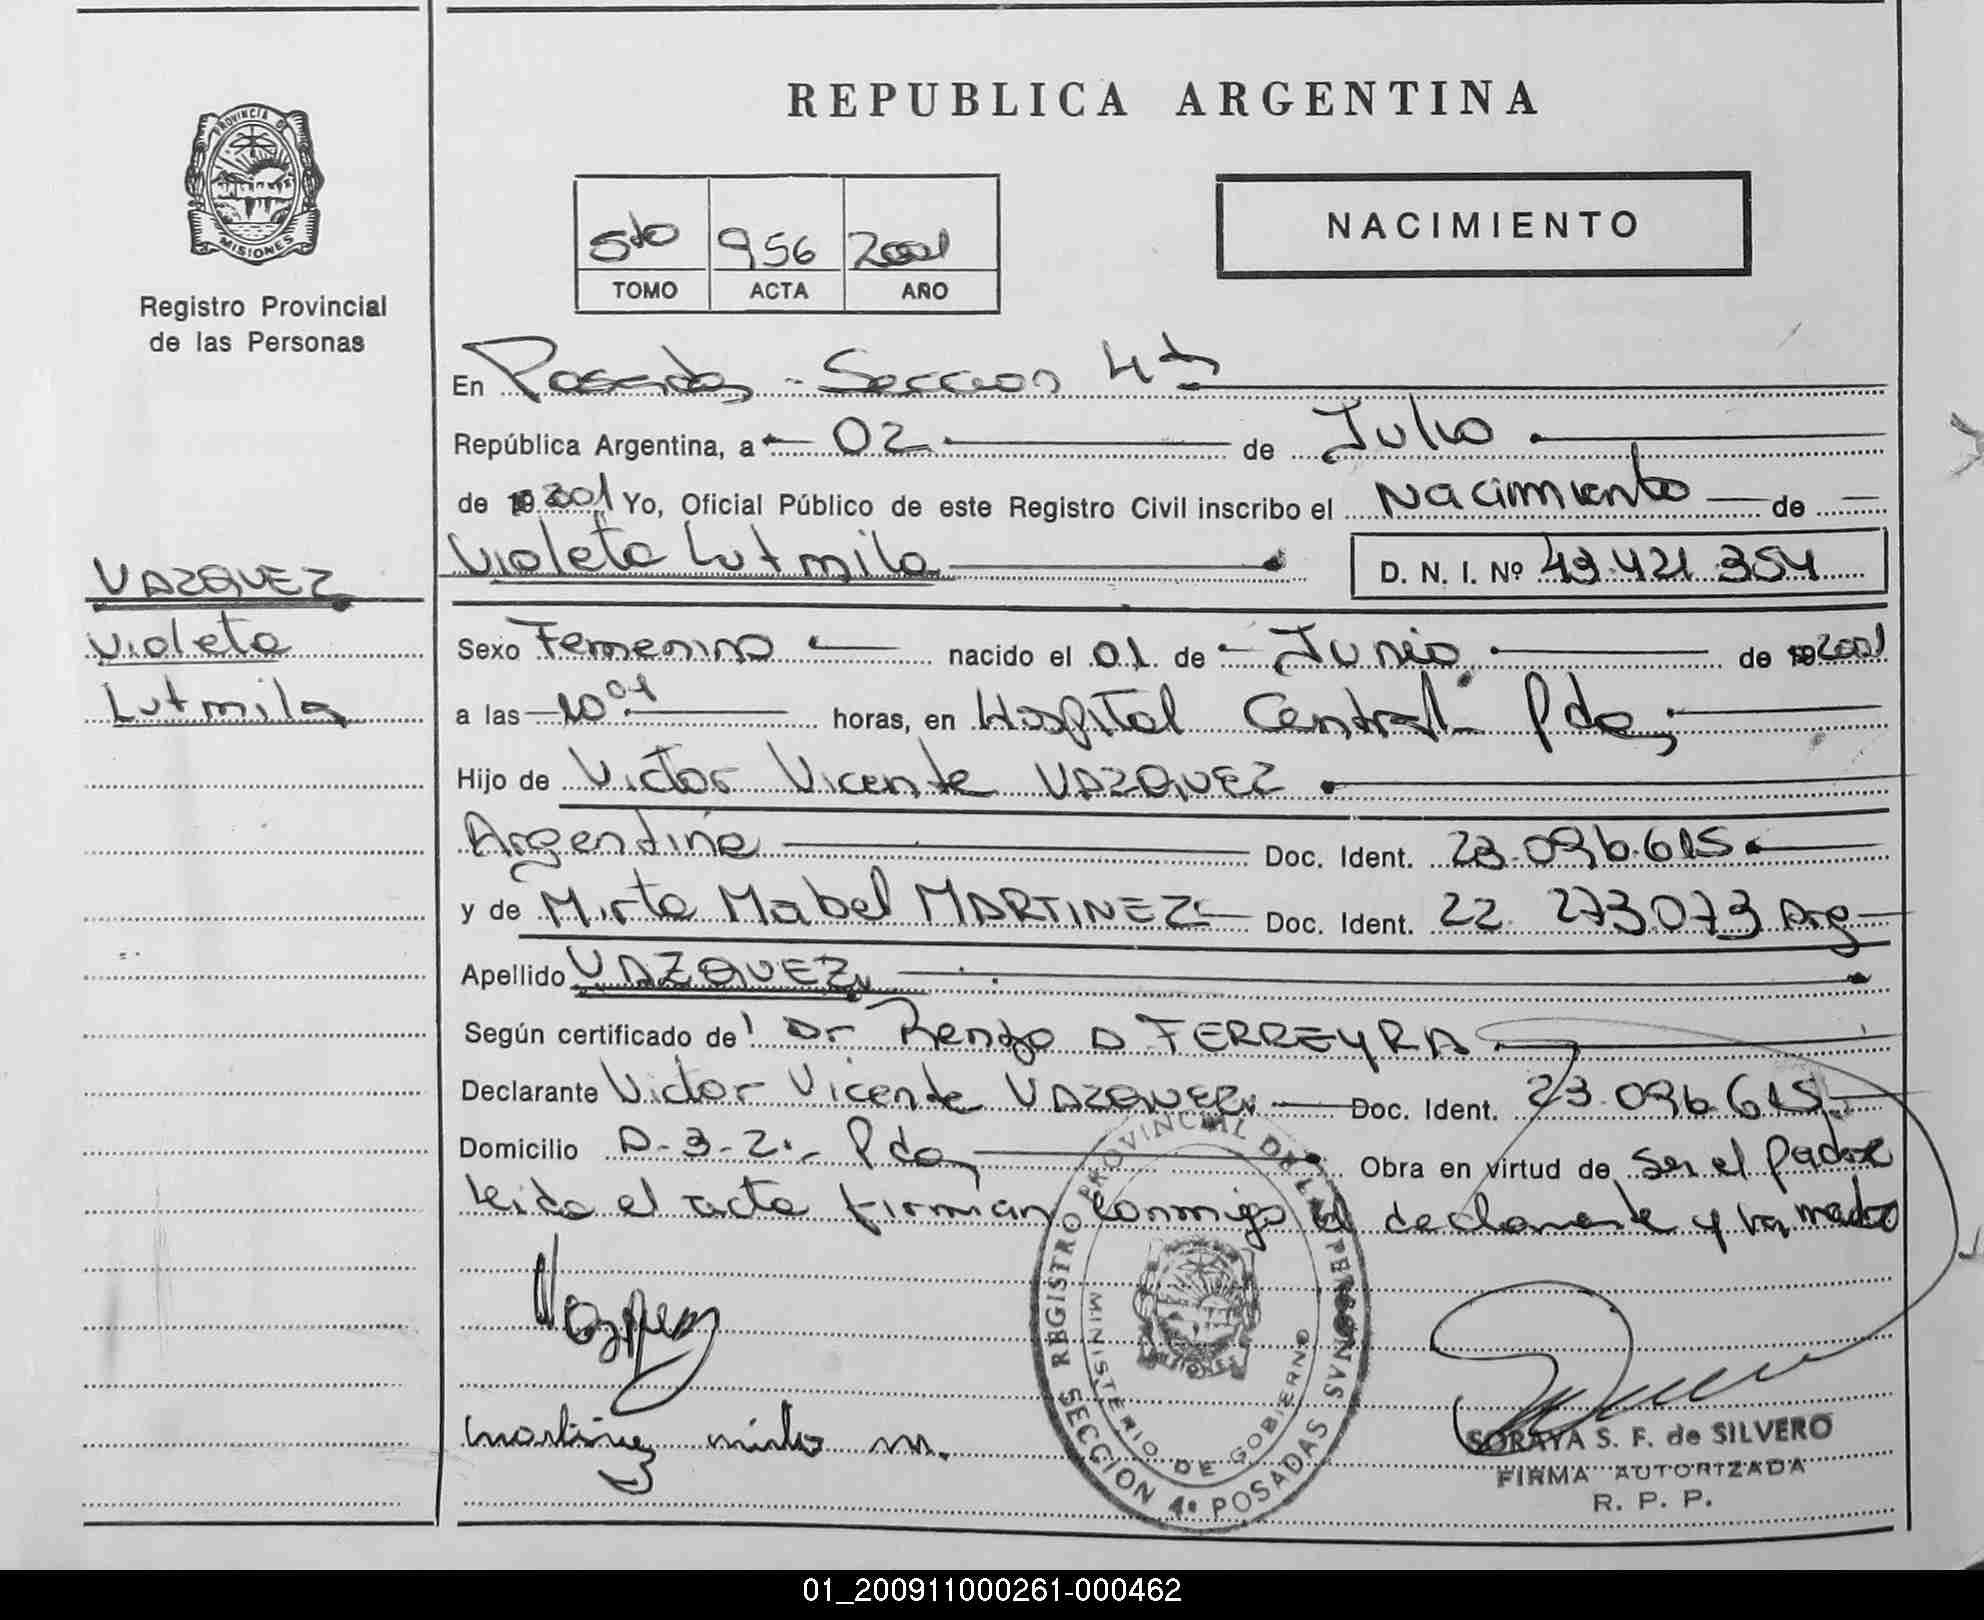 PROVINCIA DE
MISIONES
Registro Provincial
de las Personas
VAZQUEZ
Violeta
Lutmila
REPUBLICA ARGENTINA
5to 956 2001
TOMO ACTA AÑO
NACIMIENTO
En Posadas - Seccion 4ta
República Argentina, a 02 de Julio
de 19 2001 Yo, Oficial Público de este Registro Civil inscribo el Nacimiento de
Violeta Lutmila D. N. I. Nº 43.421.354
Sexo Femenino nacido el 01 de Junio de 19 2001
a las 10 horas, en Hospital Central Pdas
Hijo de Victor Vicente VAZQUEZ
Argentino Doc. Ident. 23.096.615
y de Mirta Mabel MARTINEZ Doc. Ident. 22.273.073 Arg
Apellido VAZQUEZ
Según certificado de Dr Renzo A FERREYRA
Declarante Victor Vicente VAZQUEZ Doc. Ident. 23.096.615
Domicilio A-3-2.- Pdas Obra en virtud de Ser el padre
leida el acta firman conmigo el declarante y la madre
Vazquez
Martinez mirta m.
REGISTRO PROVINCIAL DE LAS PERSONAS
MINISTERIO DE GOBIERNO
MISIONES
SECCION 4ª POSADAS
SORAYA S. F. de SILVERO
FIRMA AUTORIZADA
R. P. P.
01_200911000261-000462